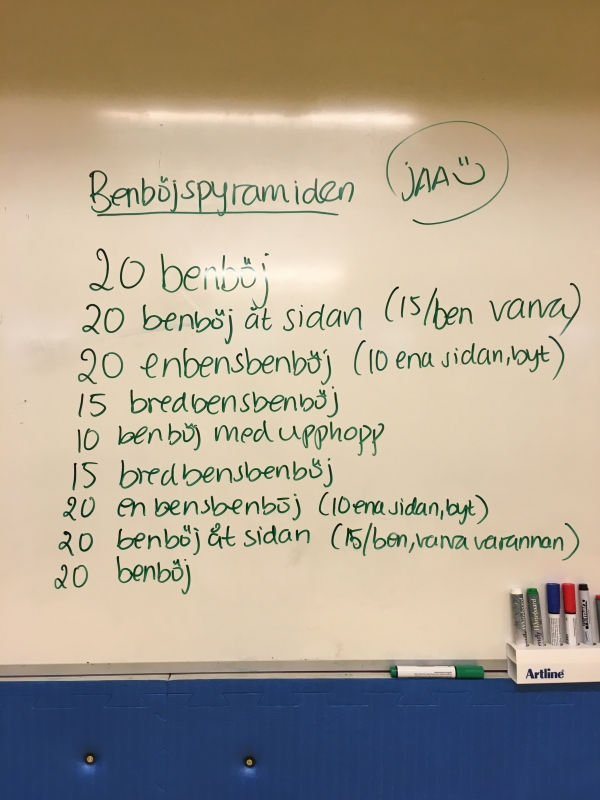 Benböjspyramiden
jAA
20 benböj
20 benböj åt sidan (15/ben varva)
20 enbensbenböj (10 ena sidan, byt)
15 bredbensbenböj
10 benböj med upphopp
15 bredbensbenböj
20 enbensbenböj (10 ena sidan, byt)
20 benböj åt sidan (15/ben, varva varannan)
20 benböj
Artline